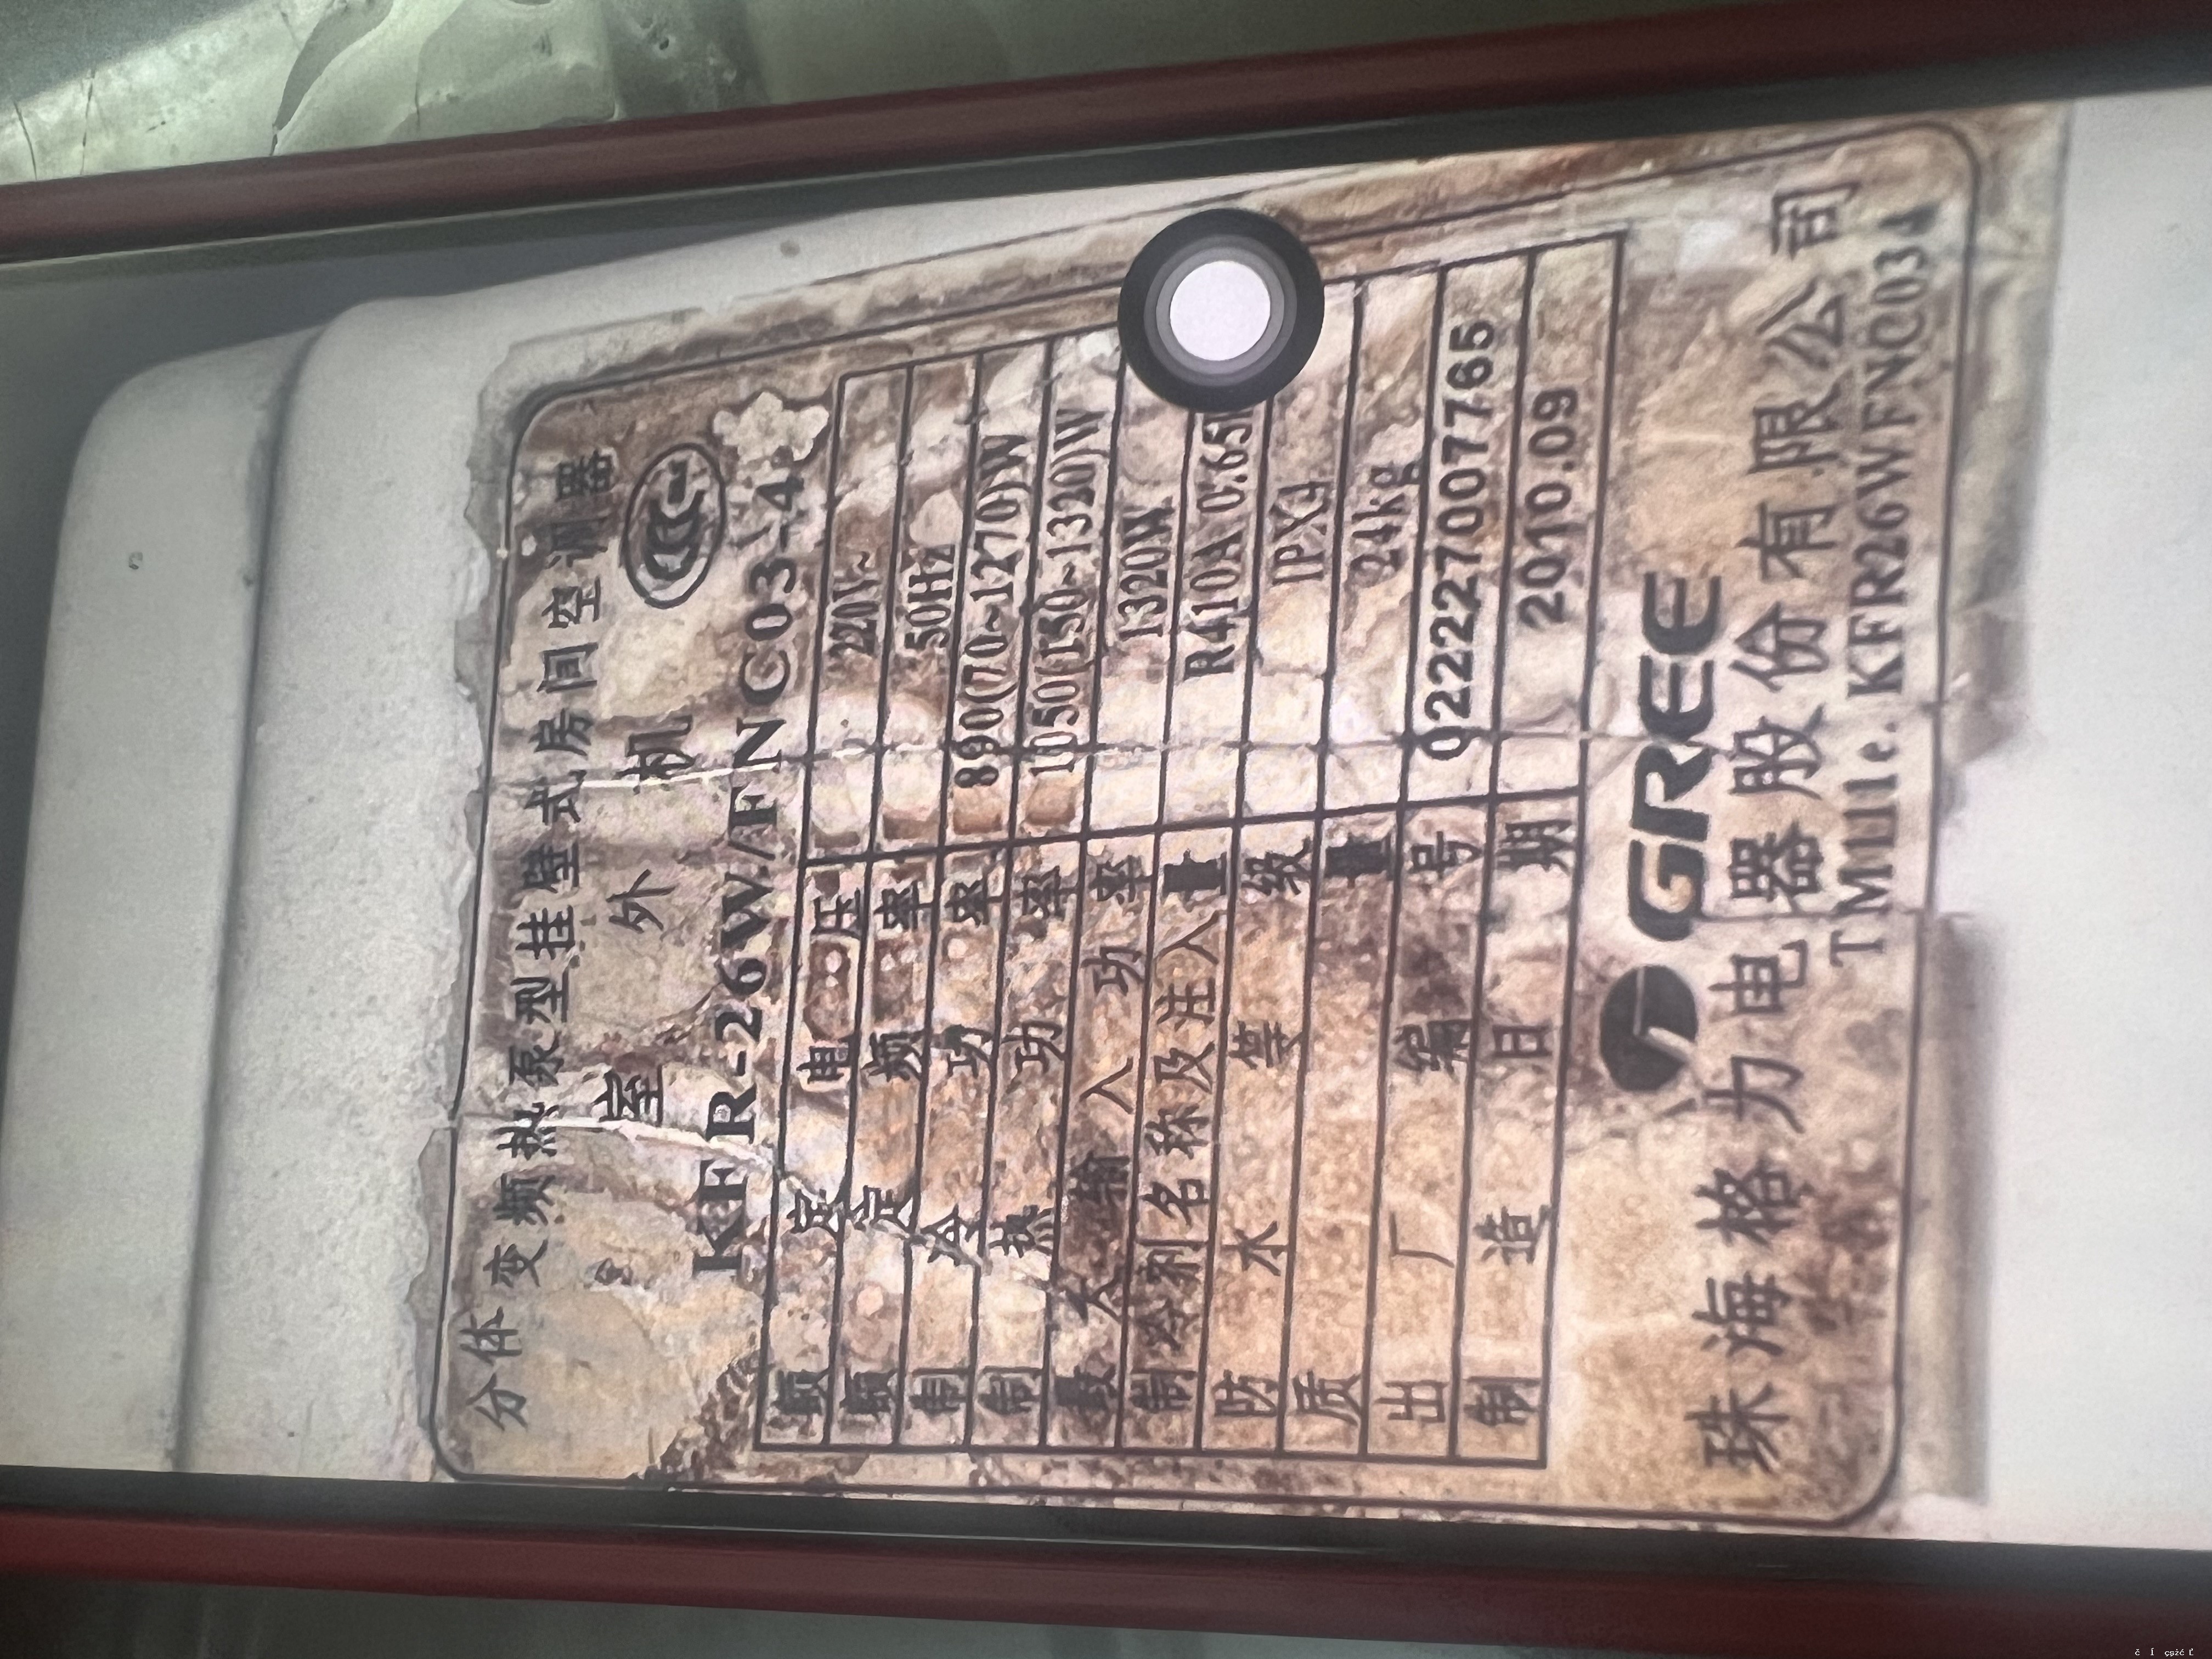 分体变频热泵型挂壁式房间空调器
室外机
KFR-26W/FNC03-4
额定电压 220V~
额定频率 50Hz
制冷功率 890(70~1270)W
制热功率 1050(150~1320)W
最大输入功率 1320W
制冷剂名称及注入量 R410A 0.65
防水等级 IPX4
质量 24kg
出厂编号 022227007765
制造日期 2010.09
GREE
珠海格力电器股份有限公司
TM111e.KFR26WFNC034